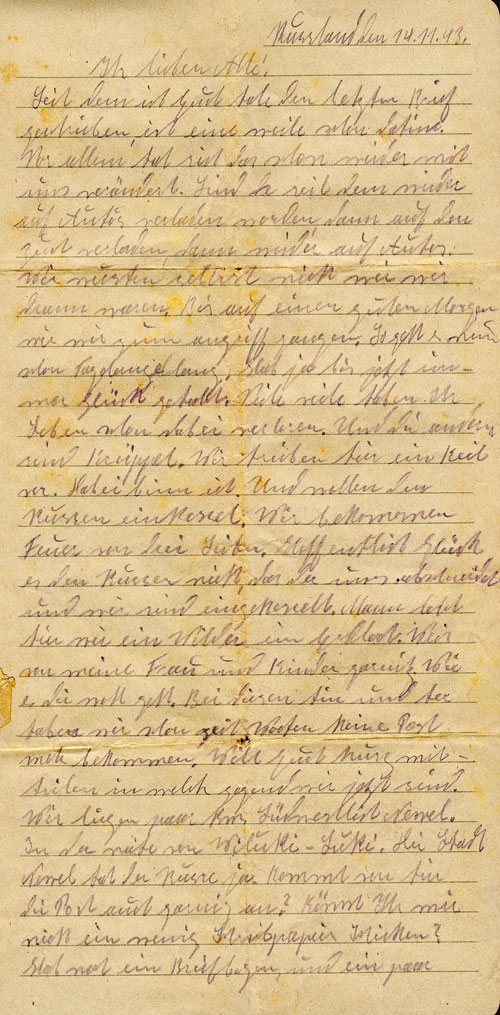 Russland den 14.11.43.
Ihr lieben Alle!
Seit dem ich Euch habe den letzten Brief
geschrieben, ist eine weile schon dahin.
Vor allem, hat sich das schon wieder mit
uns verändert. Sind da seit dem wieder
auf Autos verladen worden dann auf den
Zug verladen dann wieder auf Autos.
Wir wusten selbst nicht wie wir
drann waren. Bis auf einen guten Morgen
wie wir zum angriff gangen. So geht es nun
schon Tagelangelang, Hab ja bis jetzt im-
mer Glück gehabt. Viele viele haben Ihr
Leben schon dabei verloren. Und die andern
sind Krüppel. Wir treiben hier ein Keil
vor. Dabei binn ich. Und wollen den
Russen einkesseln. Wir bekommen
Feuer von drei Seiten. Hoffentlich Glückt
es den Russen nicht, das der uns abschneidet
und wir sind eingekesselt. Mann lebt
hier wie ein Wilder im Erdloch. Weis
von meine Frau und Kinder garnicht Wie
es die noch geht. Bei diesen hin und her
haben wir schon seit Wochen keine Post
mehr bekommen. Will Euch kurz mit-
teilen in welch gegend wir jetzt sind.
Wir liegen paar Km Südwestlich Newel.
In der nähe von Weluki-Luki. Die Stadt
Newel hat der Russe ja. Kommt von hier
die Post auch garnicht an? Könnt Ihr mir
nicht ein wenig Schreibpapier schicken?
Hab noch ein Briefbogen, und ein paar